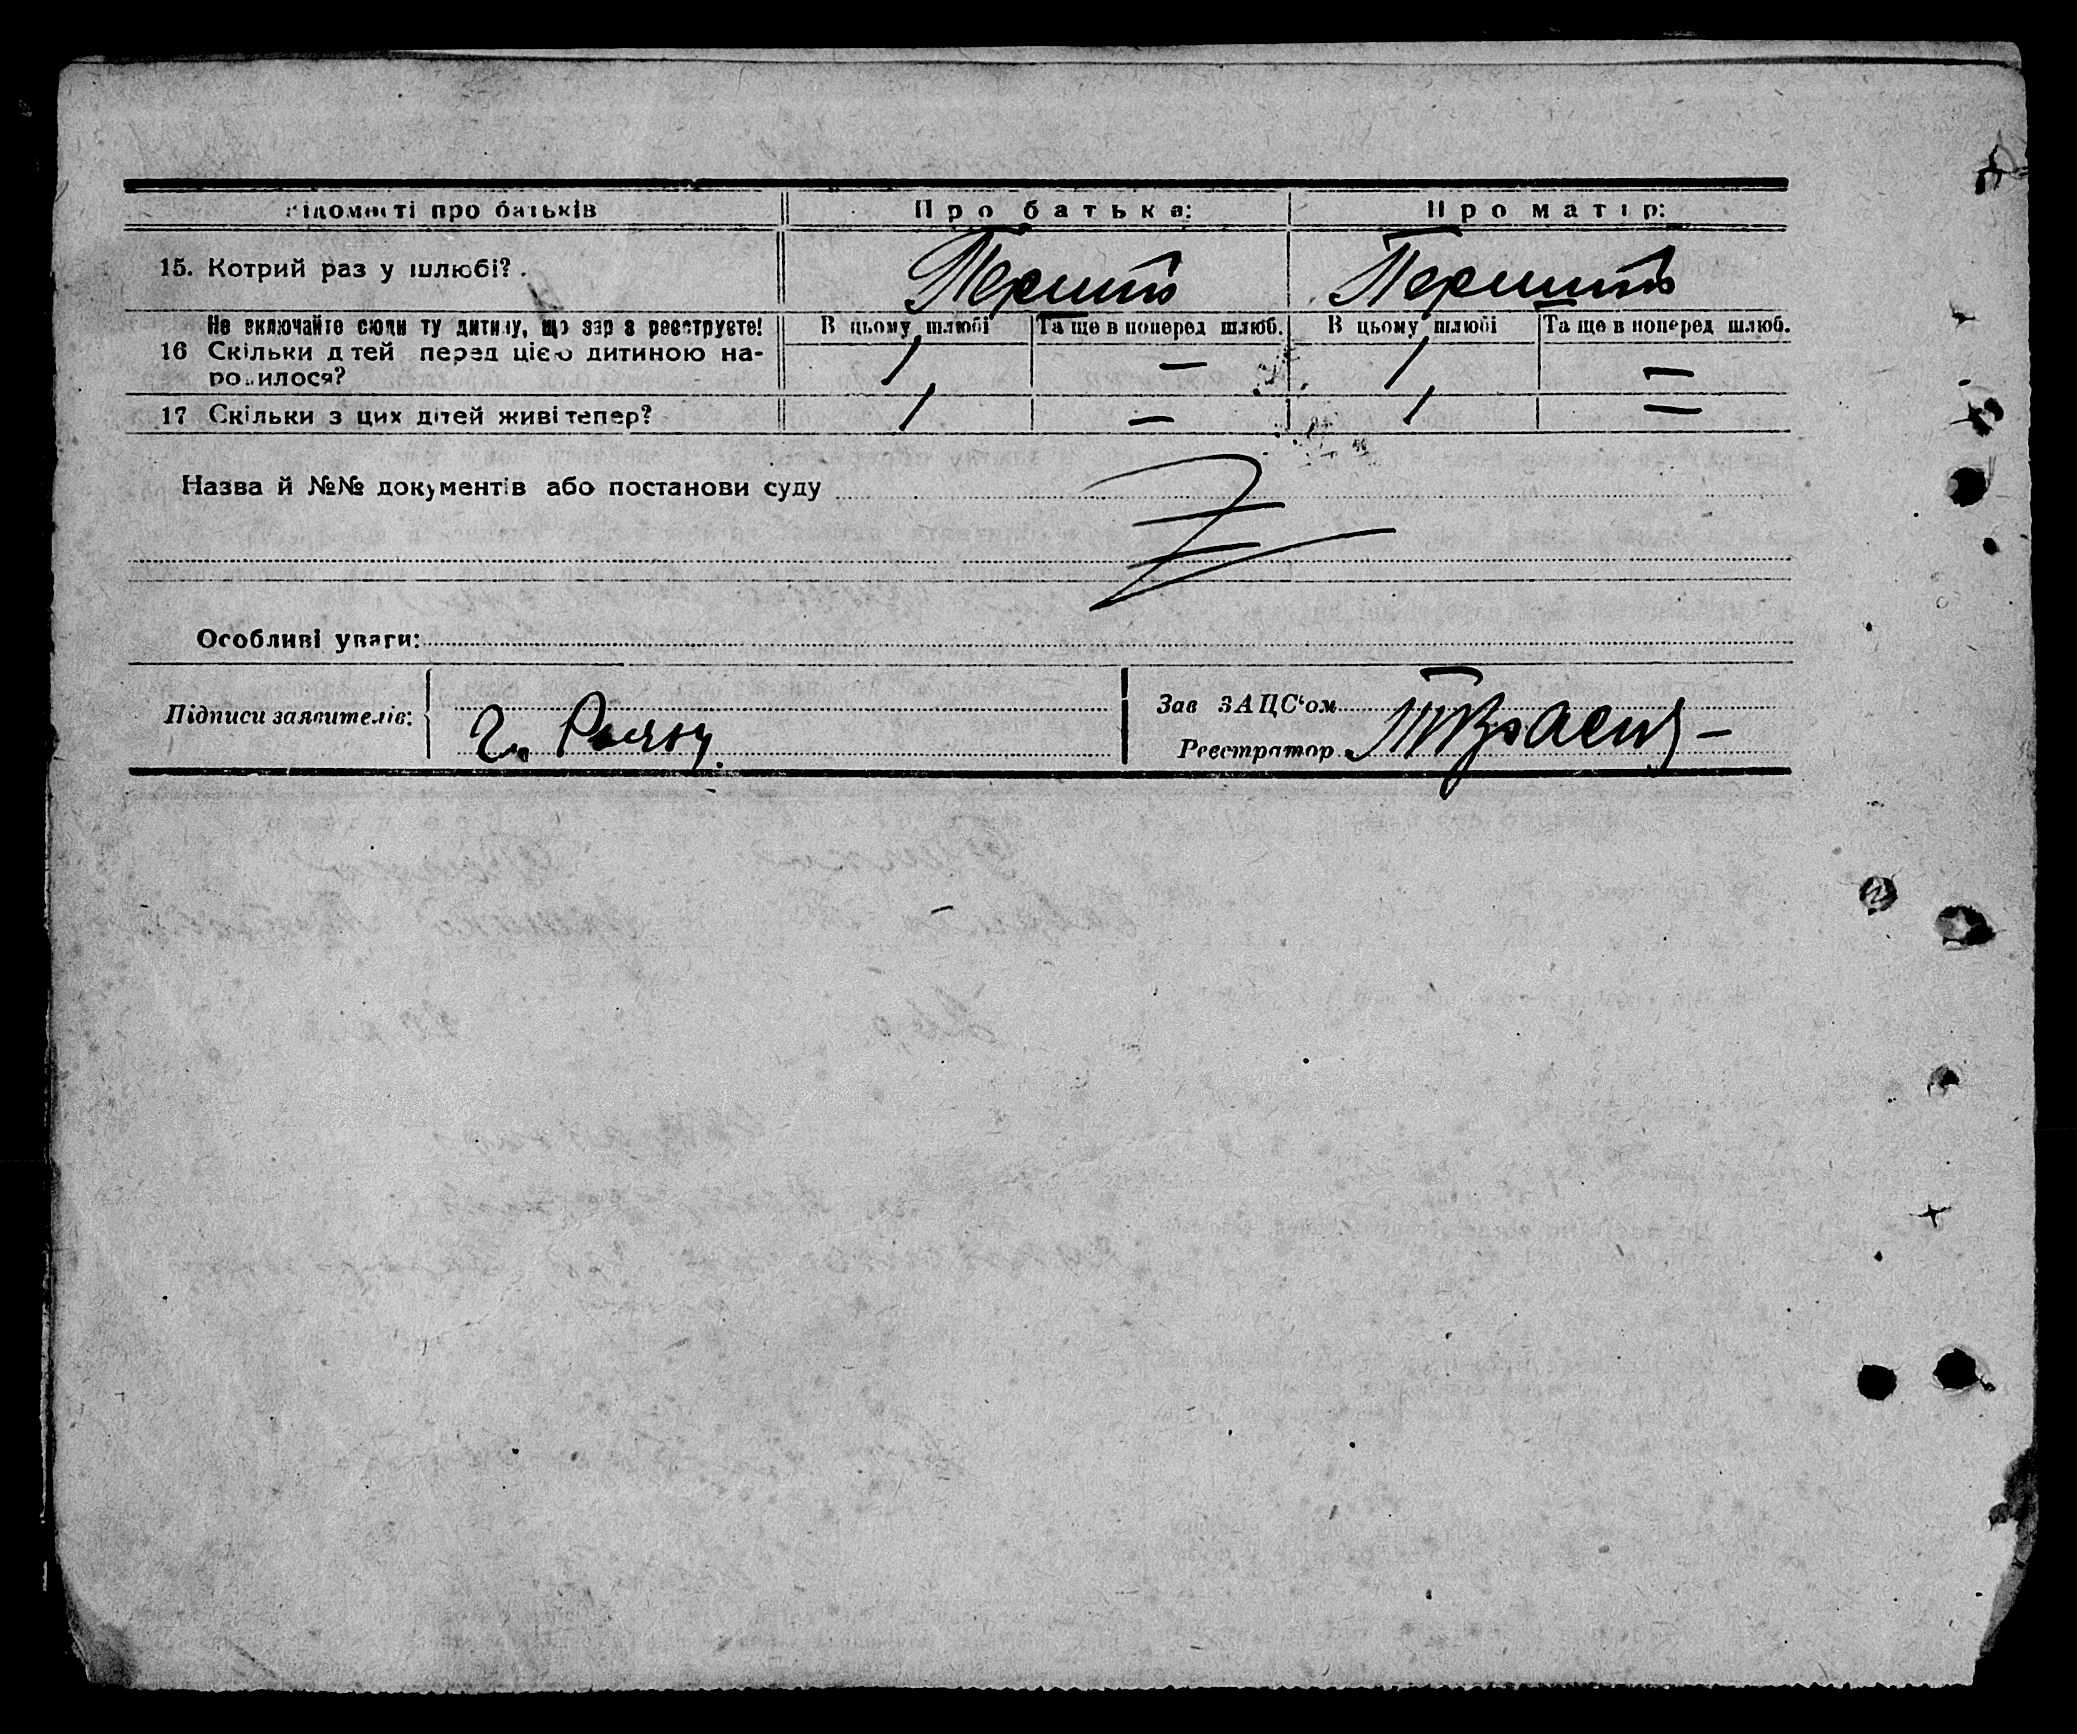 ідомості про батьків Про батька: Про матір:
15. Котрий раз у шлюбі?
Не включайте сюди ту дитину, що зараз реєструєте! В цьому шлюбі Та ще в поперед шлюб. В цьому шлюбі Та ще в поперед шлюб.
16 Скільки дітей перед цією дитиною на- 1 — 1 —
родилося?
17 Скільки з цих дітей живі тепер? 1 — 1 —
Назва й №№ документів або постанови суду
Особливі уваги:
Підписи заявителів:
Зав ЗАЦС'ом
Реєстратор